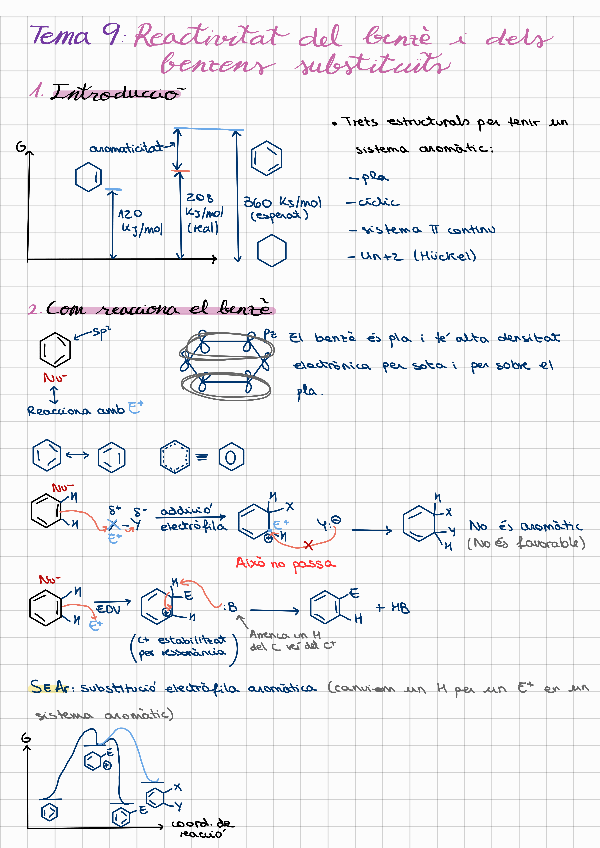 Tema 9: Reactivitat del benzè i dels
benzens substituïts
1. Introducció
• Trets estructurals per tenir un
sistema aromàtic:
- pla
- cíclic
- sistema π continu
- 4n+2 (Hückel)
G
aromaticitat
120
KJ/mol
208
KJ/mol
(real)
360 KJ/mol
(esperat)
2. Com reacciona el benzè
sp²
Nu⁻
Reacciona amb E⁺
Pz
El benzè és pla i té alta densitat
electrònica per sota i per sobre el
pla.
Nu⁻
H
H
δ⁺ δ⁻
X-Y
E⁺
addició
electròfila
H
X
E⁺
H
Y:⊖
X
Això no passa
H
X
Y
H
No és aromàtic
(No és favorable)
Nu⁻
H
H
E⁺
EDV
H
E
H
:B
E
H
+ HB
(C+ estabilitzat
per ressonància)
Arrenca un H
del C veí del C⁺
SEAr: substitució electròfila aromàtica (canviem un H per un E⁺ en un
sistema aromàtic)
G
E
E
X
Y
coord. de
reacció